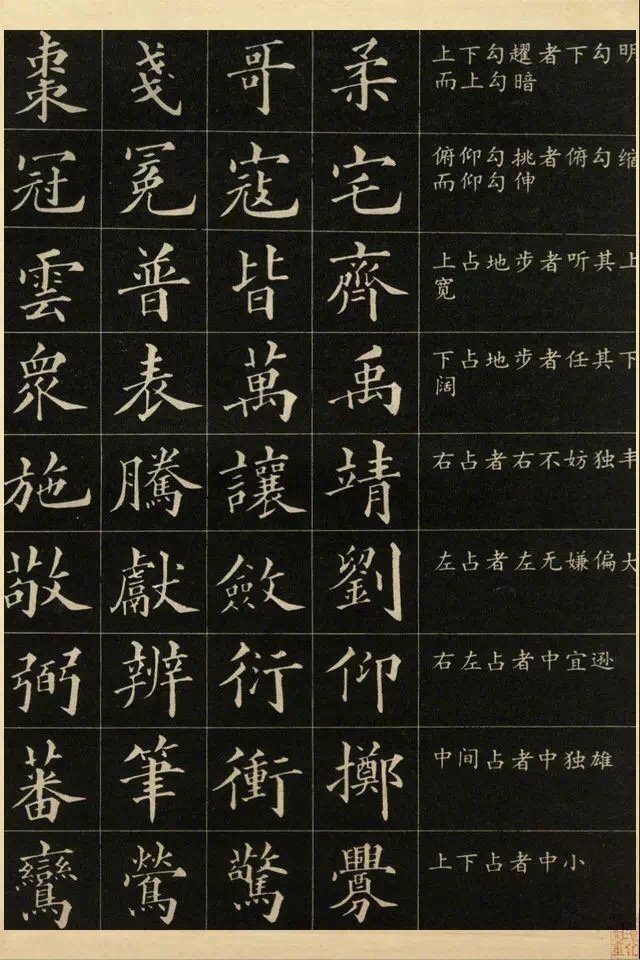 棗 戔 哥 柔 上下勾趯者下勾明
而上勾暗
冠 冕 寇 宅 俯仰勾挑者俯勾缩
而仰勾伸
雲 普 皆 齊 上占地步者听其上
宽
衆 表 萬 禹 下占地步者任其下
阔
施 騰 讓 靖 右占者右不妨独丰
敬 獻 斂 劉 左占者左无嫌偏大
弼 辨 衍 仰 右左占者中宜逊
蕃 筆 衝 擲 中间占者中独雄
鸞 鶯 驚 釁 上下占者中小